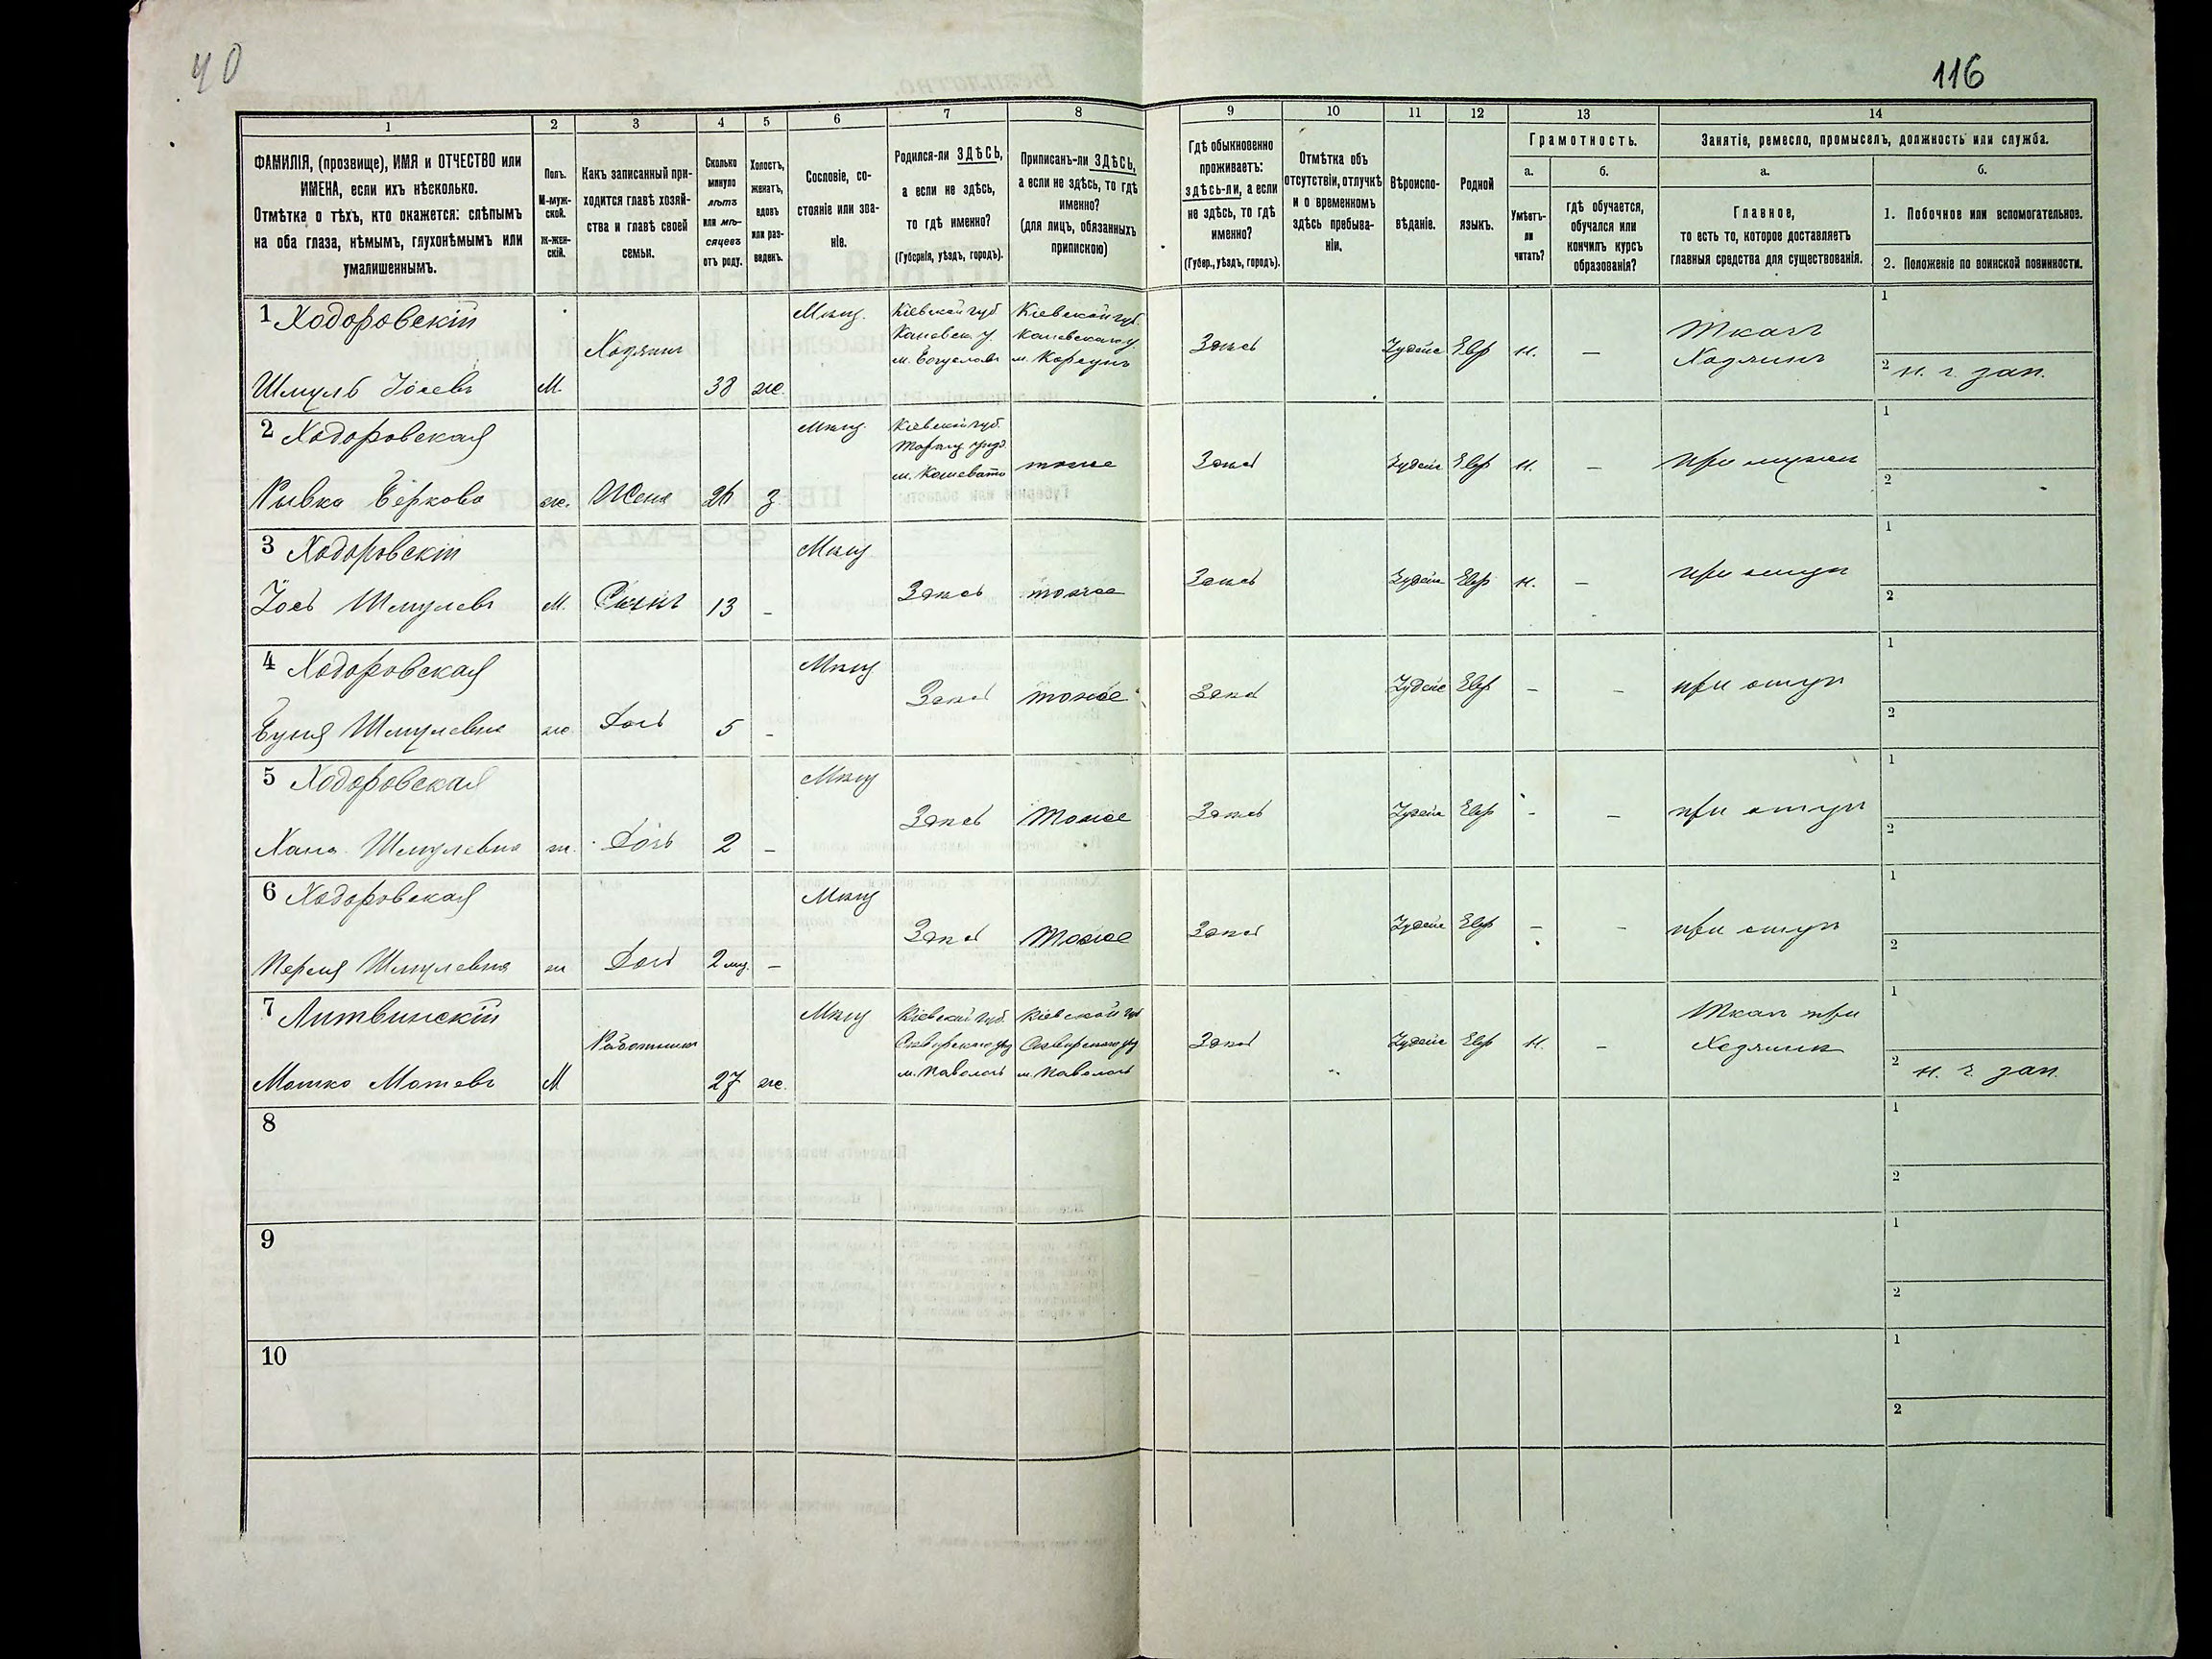 40
116
1
2
3
4
5
6
7
8
9
10
11
12
13
14
ФАМИЛІЯ, (прозвище), ИМЯ и ОТЧЕСТВО или
ИМЕНА, если ихъ нѣсколько.
Отмѣтка о тѣхъ, кто окажется: слѣпымъ
на оба глаза, нѣмымъ, глухонѣмымъ или
умалишеннымъ.
Полъ.
М-муж-
ской.
Ж-жен-
скій.
Какъ записанный при-
ходится главѣ хозяй-
ства и главѣ своей
семьи.
Сколько
минуло
лѣтъ
или мѣ-
сяцевъ
отъ роду.
Холостъ,
женатъ,
вдовъ
или раз-
веденъ.
Сословіе, со-
стояніе или зва-
ніе.
Родился-ли ЗДѢСЬ,
а если не здѣсь,
то гдѣ именно?
(Губернія, уѣздъ, городъ).
Приписанъ-ли ЗДѢСЬ,
а если не здѣсь, то гдѣ
именно?
(для лицъ, обязанныхъ
припискою)
Гдѣ обыкновенно
проживаетъ:
здѣсь-ли, а если
не здѣсь, то гдѣ
именно?
(Губер., уѣздъ, городъ).
Отмѣтка объ
отсутствіи, отлучкѣ
и о временномъ
здѣсь пребыва-
ніи.
Вѣроиспо-
вѣданіе.
Родной
языкъ.
Грамотность.
а.
Умѣетъ-
ли
читать?
б.
гдѣ обучается,
обучался или
кончилъ курсъ
образованія?
Занятіе, ремесло, промыселъ, должность или служба.
а.
Главное,
то есть то, которое доставляетъ
главныя средства для существованія.
б.
1. Побочное или вспомогательное.
2. Положеніе по воинской повинности.
1 Ходоровскій
Шмуль Іосевъ
М.
Хозяинъ
38
же.
Мѣщ.
Кіевской губ
Каневск. у.
м. Богуславъ
Кіевской губ.
Каневскаго у.
м. Корсунь
Здѣсь
Іудейс
Евр
н.
—
Ткачъ
Хозяинъ
1
2 н. ч. зап.
2 Ходоровская
Рывка Беркова
же.
Жена
26
з.
Мѣщ.
Кіевской губ.
м. Кошевато
тоже
Здѣсь
Іудейс
Евр
н.
—
при мужѣ
1
2
3 Ходоровскій
Іось Шмулевъ
М.
Сынъ
13
-
Мѣщ
Здѣсь
тоже
Здѣсь
Іудейс
Евр
н.
—
при отцѣ
1
2
4 Ходоровская
Буня Шмулевна
же.
Дочь
5
-
Мѣщ
Здѣсь
тоже
Здѣсь
Іудейс
Евр
-
-
при отцѣ
1
2
5 Ходоровская
Хана Шмулевна
ж.
Дочь
2
-
Мѣщ
Здѣсь
Тоже
Здѣсь
Іудейс
Евр
-
-
при отцѣ
1
2
6 Ходоровская
Перля Шмулевна
ж
Дочь
2 мц.
-
Мѣщ
Здѣсь
Тоже
Здѣсь
Іудейс
Евр
-
-
при отцѣ
1
2
7 Литвинскій
Мошко Мотевъ
М
Работникъ
27
же.
Мѣщ
Кіевской губ.
Сквирскаго узд
м. Паволочь
Кіевской губ
Сквирскаго узд
м. Паволочь
Здѣсь
Іудейс
Евр
н.
—
Ткачъ при
Хозяинѣ
1
2 н. ч. зап.
8
1
2
9
1
2
10
1
2